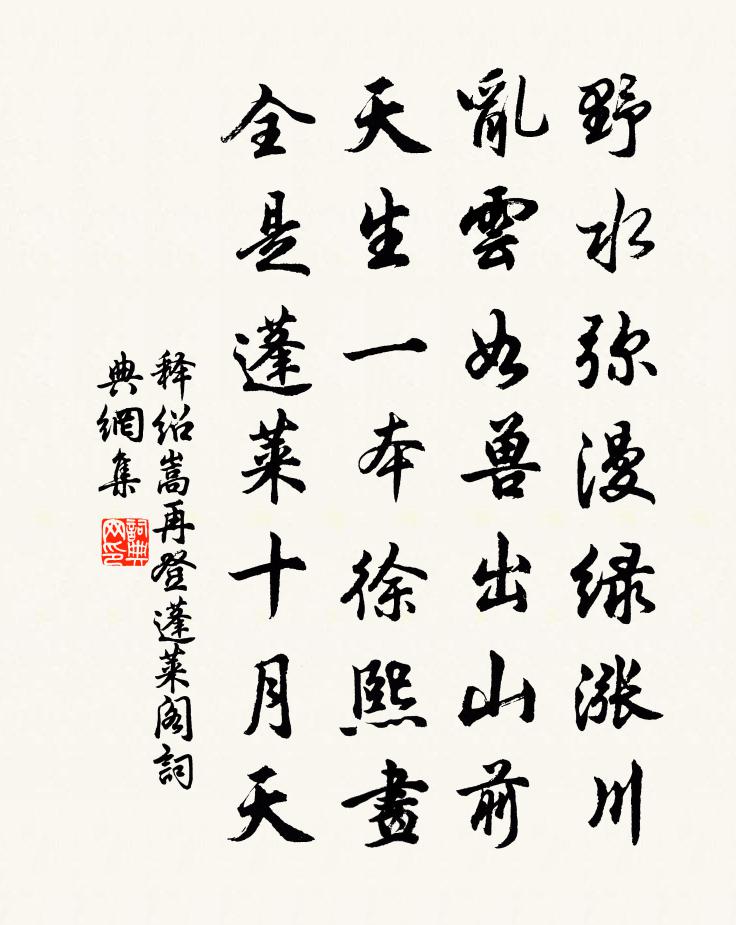 野水弥漫绿漲川
亂雲如兽出山前
天生一本徐熙畫
全是蓬莱十月天
释绍嵩再登蓬莱阁詞
典網集
詞典
网印